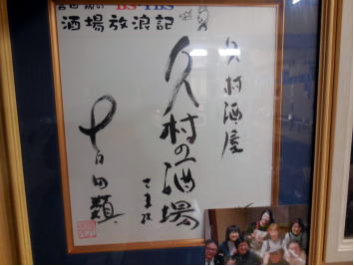 吉田類の BS-TBS
酒場放浪記
久村酒屋
久村の酒場
さま江
吉田類